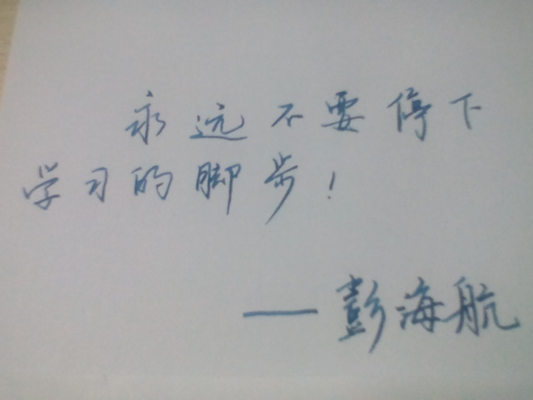 永远不要停下
学习的脚步!
——彭海航